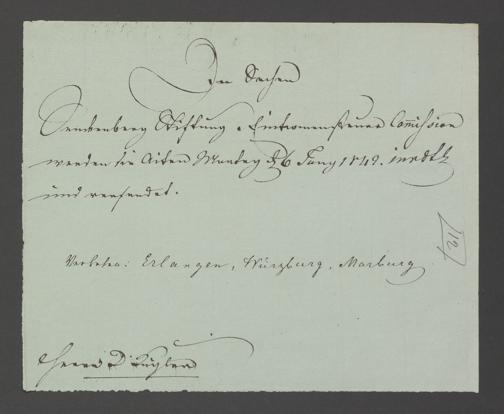 In Sachen
Senckenberg Stiftung c. Einkommensteuer Commission
werden die Akten Montag d. 6 Juny 1842. inrotl.
und versendet.
Verbeten: Erlangen, Würzburg, Marburg
Herrn Dr